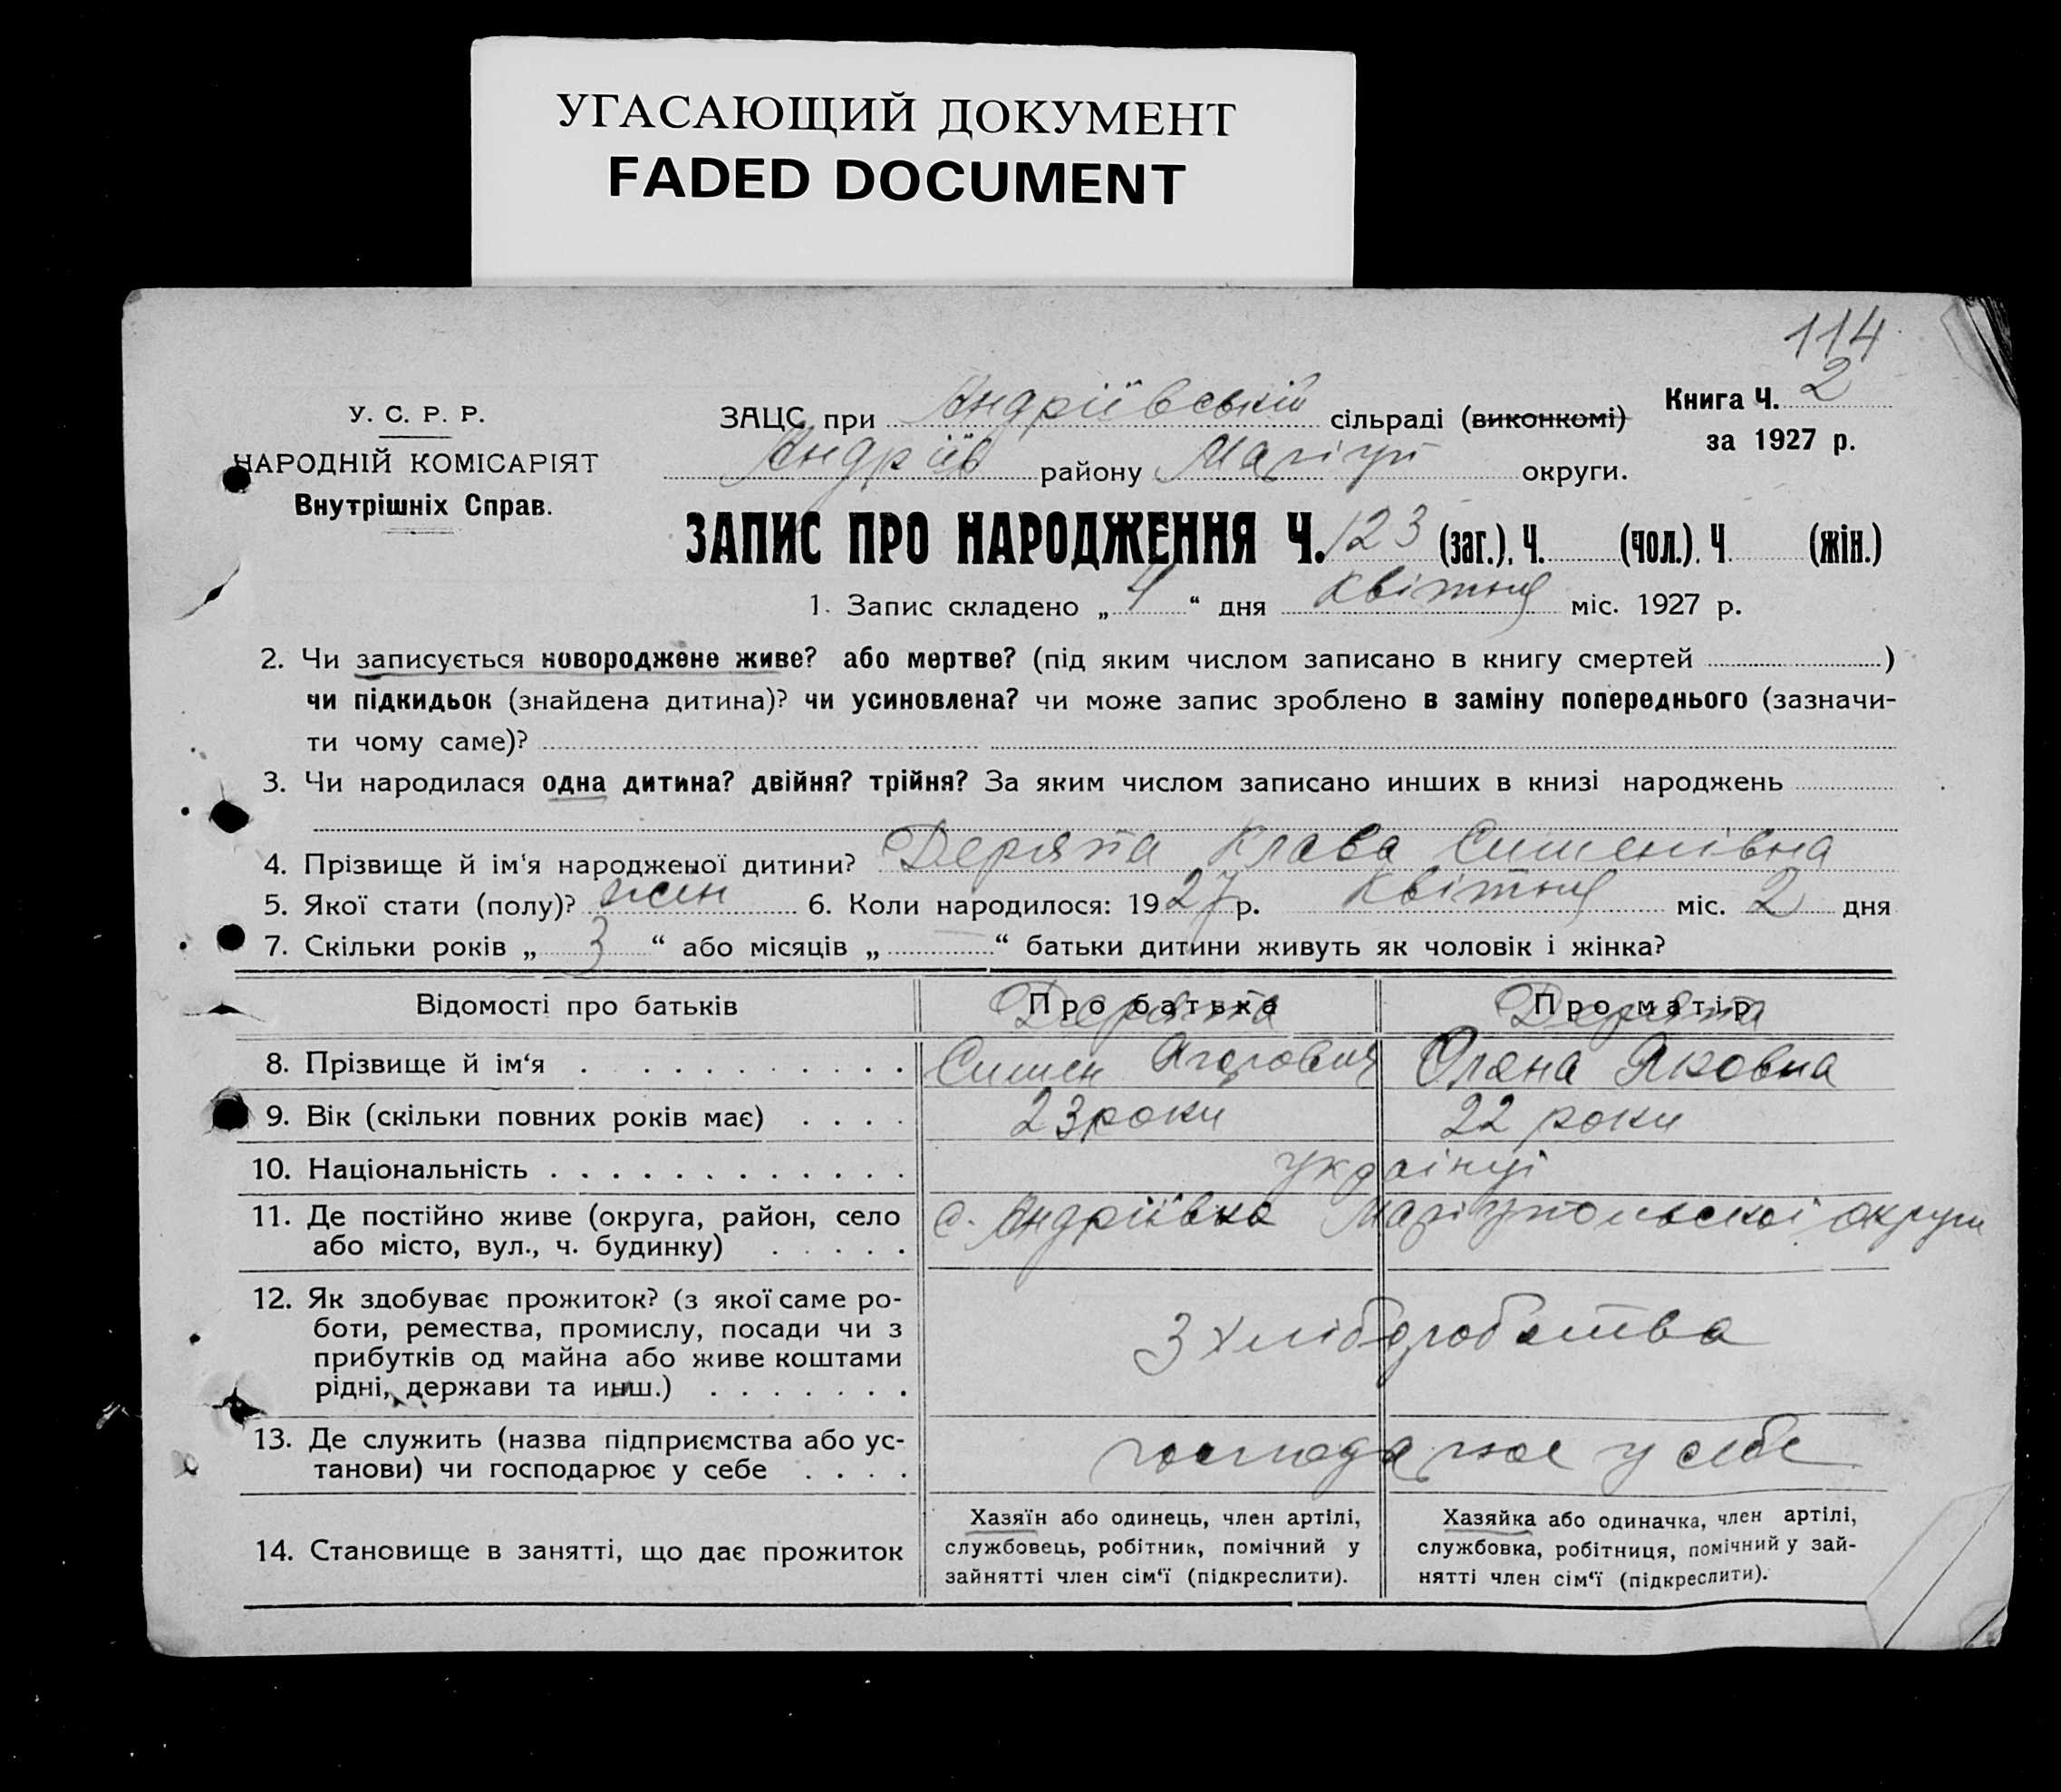 УГАСАЮЩИЙ ДОКУМЕНТ
FADED DOCUMENT
114
У. С. Р. Р.
НАРОДНІЙ КОМІСАРІЯТ
Внутрішніх Справ.
ЗАЦС при Андріївській сільраді (виконкомі)
Андріїв району Маріуп округи.
Книга Ч. 2
за 1927 р.
ЗАПИС ПРО НАРОДЖЕННЯ Ч. 123 (заг.), Ч. (чол.). Ч (жін.)
1. Запис складено „ 4 “ дня квітня міс. 1927 р.
2. Чи записується новороджене живе? або мертве? (під яким числом записано в книгу смертей )
чи підкидьок (знайдена дитина)? чи усиновлена? чи може запис зроблено в заміну попереднього (зазначи-
ти чому саме)?
3. Чи народилася одна дитина? двійня? трійня? За яким числом записано инших в книзі народжень
4. Прізвище й ім'я народженої дитини? Клава
5. Якої стати (полу)? жін 6. Коли народилося: 1927 р. квітня міс. 2 дня
7. Скільки років „ 3 “ або місяців „ “ батьки дитини живуть як чоловік і жінка?
Відомості про батьків Про батька Про матір
8. Прізвище й ім‘я Олена Яковна
9. Вік (скільки повних років має) 23 роки 22 роки
10. Національність українці
11. Де постійно живе (округа, район, село с. Андріївка Маріупольської округи
або місто, вул., ч. будинку)
12. Як здобуває прожиток? (з якої саме ро-
боти, ремества, промислу, посади чи з З хліборобства
прибутків од майна або живе коштами
рідні, держави та инш.)
13. Де служить (назва підприємства або ус- господарює у себе
танови) чи господарює у себе
14. Становище в занятті, що дає прожиток
Хазяїн або одинець, член артілі,
службовець, робітник, помічний у
зайнятті член сім‘ї (підкреслити).
Хазяйка або одиначка, член артілі,
службовка, робітниця, помічний у зай-
нятті член сім‘ї (підкреслити).